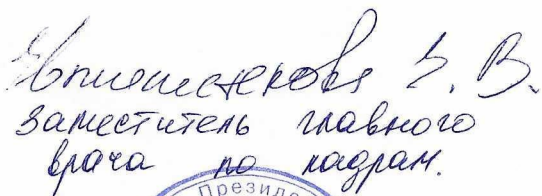 З. В.
заместитель главного
врача по кадрам.
Президе